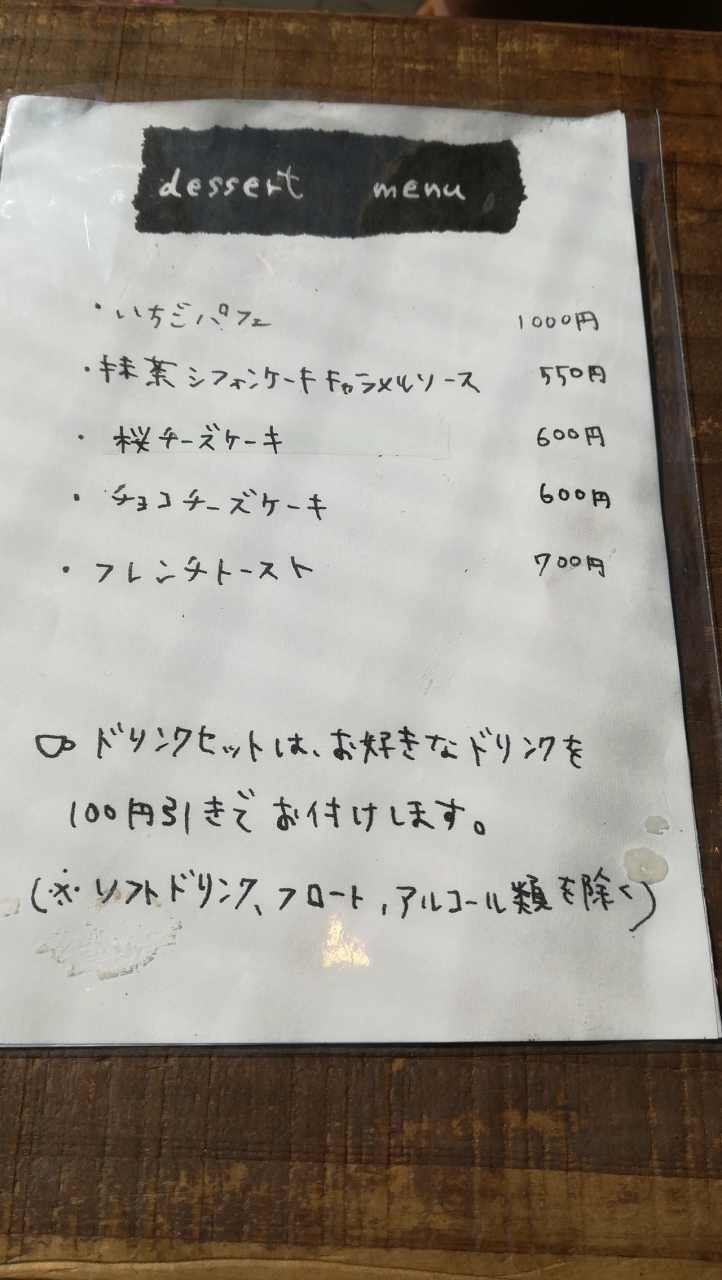 dessert menu
・いちごパフェ 1000円
・抹茶シフォンケーキキャラメルソース 550円
・桜チーズケーキ 600円
・チョコチーズケーキ 600円
・フレンチトースト 700円
ドリンクセットは、お好きなドリンクを
100円引きでお付けします。
(※ソフトドリンク、フロート、アルコール類を除く)